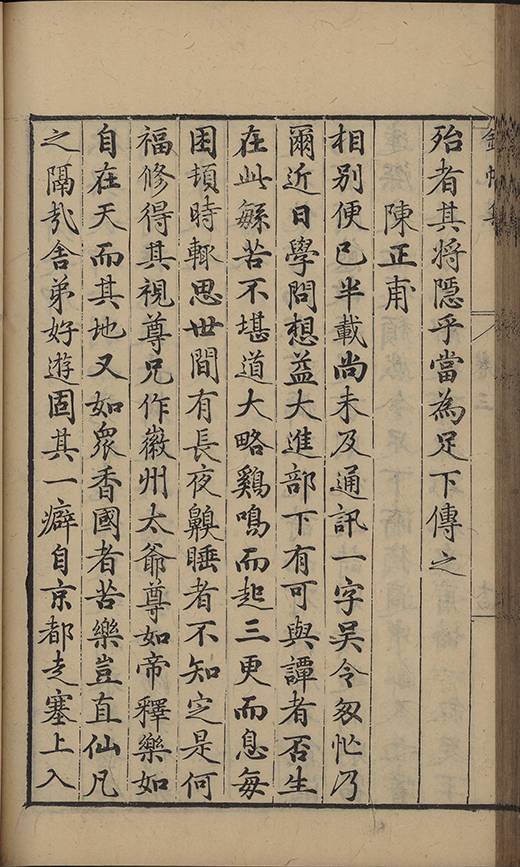 殆者其將隱乎當為足下傳之
陳正甫
相別便已半載尚未及通訊一字吴令匆忙乃
爾近日學問想益大進部下有可與譚者否生
在此繇苦不堪道大略鷄鳴而起三更而息每
困頓時輙思世間有長夜齁睡者不知定是何
福修得其視尊兄作徽州太爺尊如帝釋樂如
自在天而其地又如眾香國者苦樂豈直仙凡
之隔哉舍弟好遊固其一癖自京都走塞上入
卷三